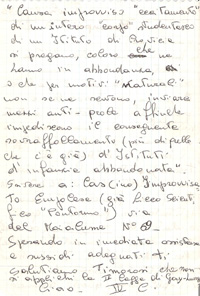 "Causa improvviso "reclutamento"
di un intero "corpo" studentesco
di un Istituto di Provincia
si pregano, coloro che ne
hanno in abbondanza,
o che per motivi "naturali"
non se ne servono, inviare
mezzi anti-prole affinché
impediscono il conseguente
sovraffollamento (più di quello
che c'è già) d'Istituti
d'infanzia abbandonata".
Scrivere a: Cas(ino) Improvvisa
To Empolese (già Liceo Scient
fico "Pontormo") via
del Nocalume N° 69.
Sperando in immediata assistenza
e sussidi adeguati,
salutiamo Timorosi che non
si applichi la II legge di Gay-Lussac
Ciao. IV C.